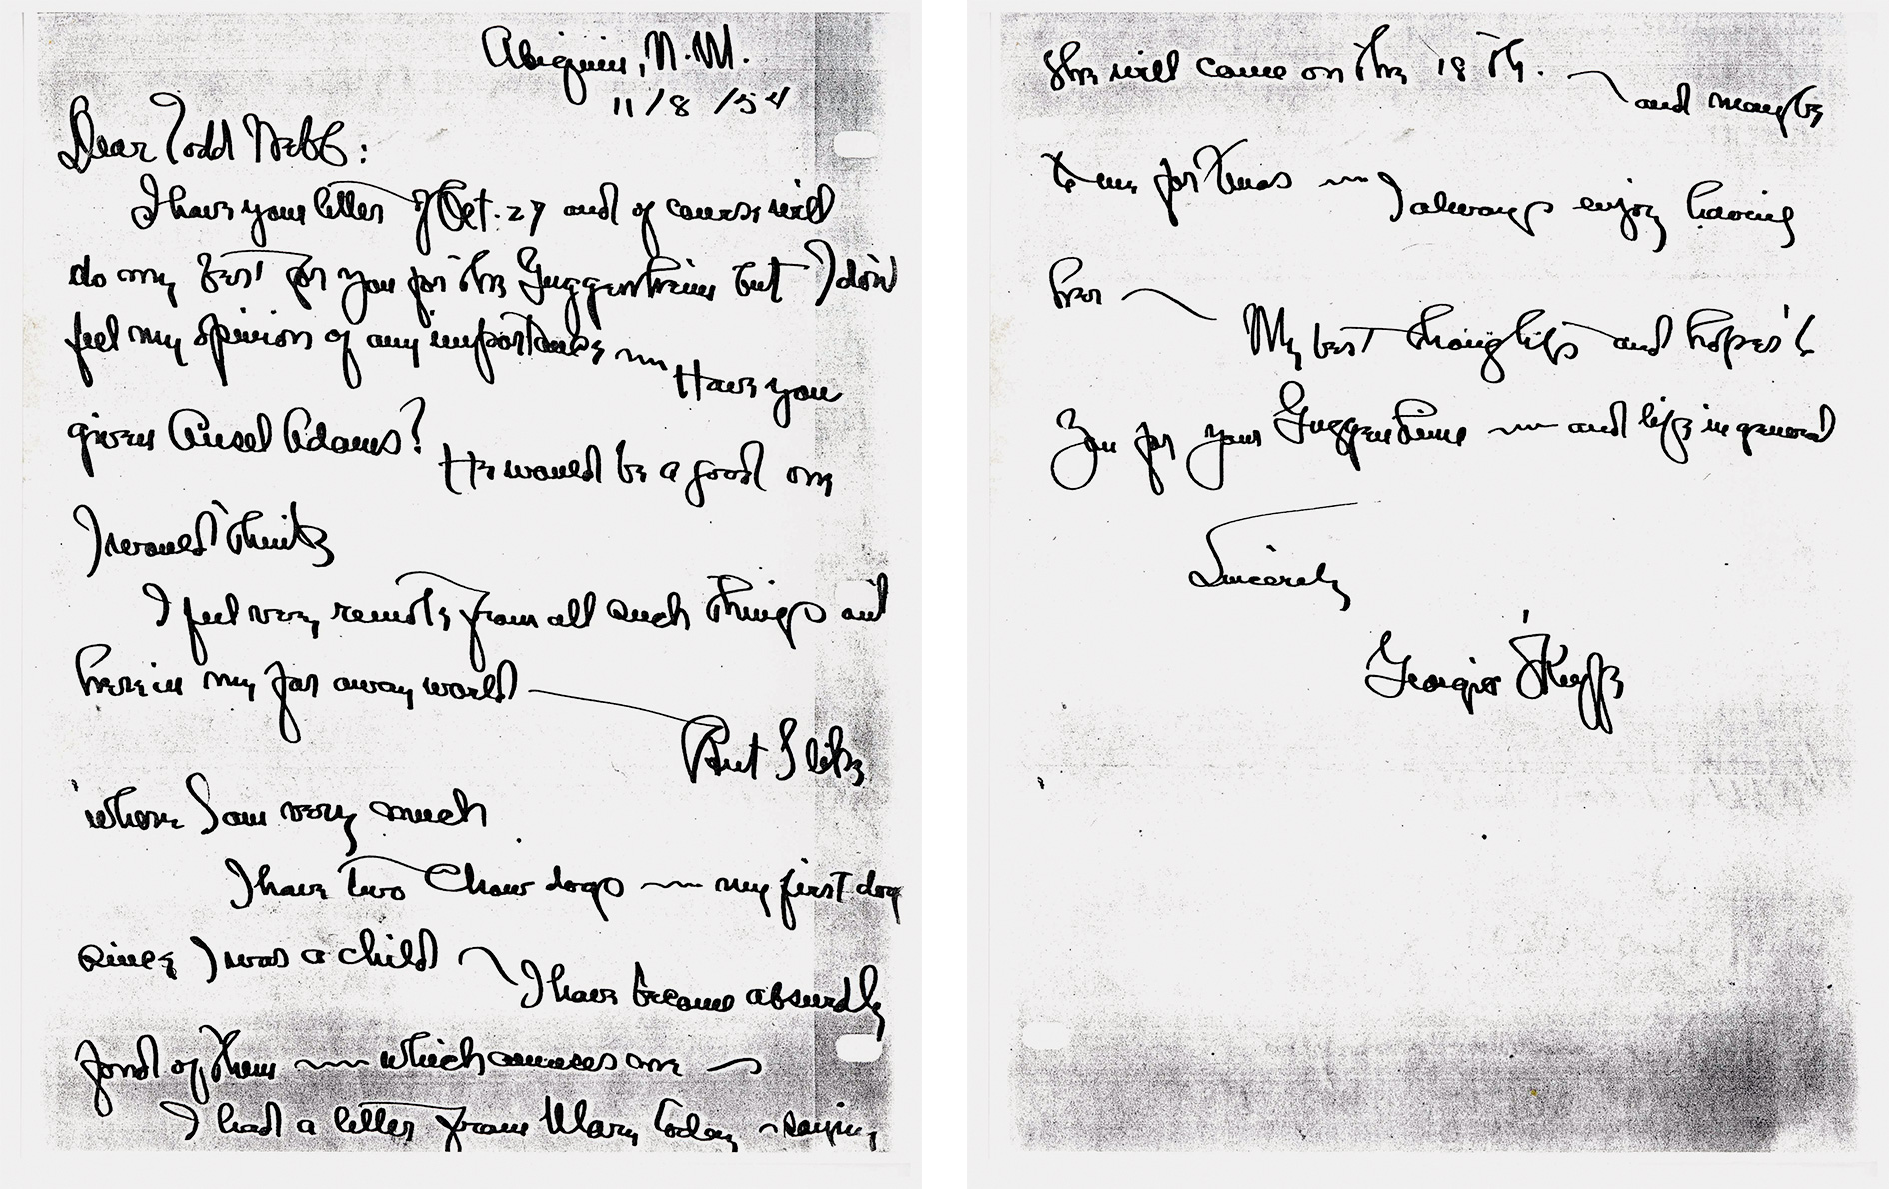 Abiquiu, N.M.
11/8/54
Dear Todd Webb:
I have your letter of Oct. 27 and of course will
do my best for you for the Guggenheim but I don't
feel my opinion of any importance ~ Have you
given Ansel Adams? He would be a good one
I would think
I feel very remote from all such things out
here in my far away world —
But I like
where I am very much
I have two Chow dogs ~ my first dog
since I was a child ~ I have become absurdly
fond of them ~ which amuses me ~
I had a letter from Mary today ~ saying
she will come on the 18th. ~ and maybe
to me for Xmas ~ I always enjoy having
her ~
My best thoughts and hopes to
you for your Guggenheim ~ and life in general
Sincerely
Georgia O'Keeffe